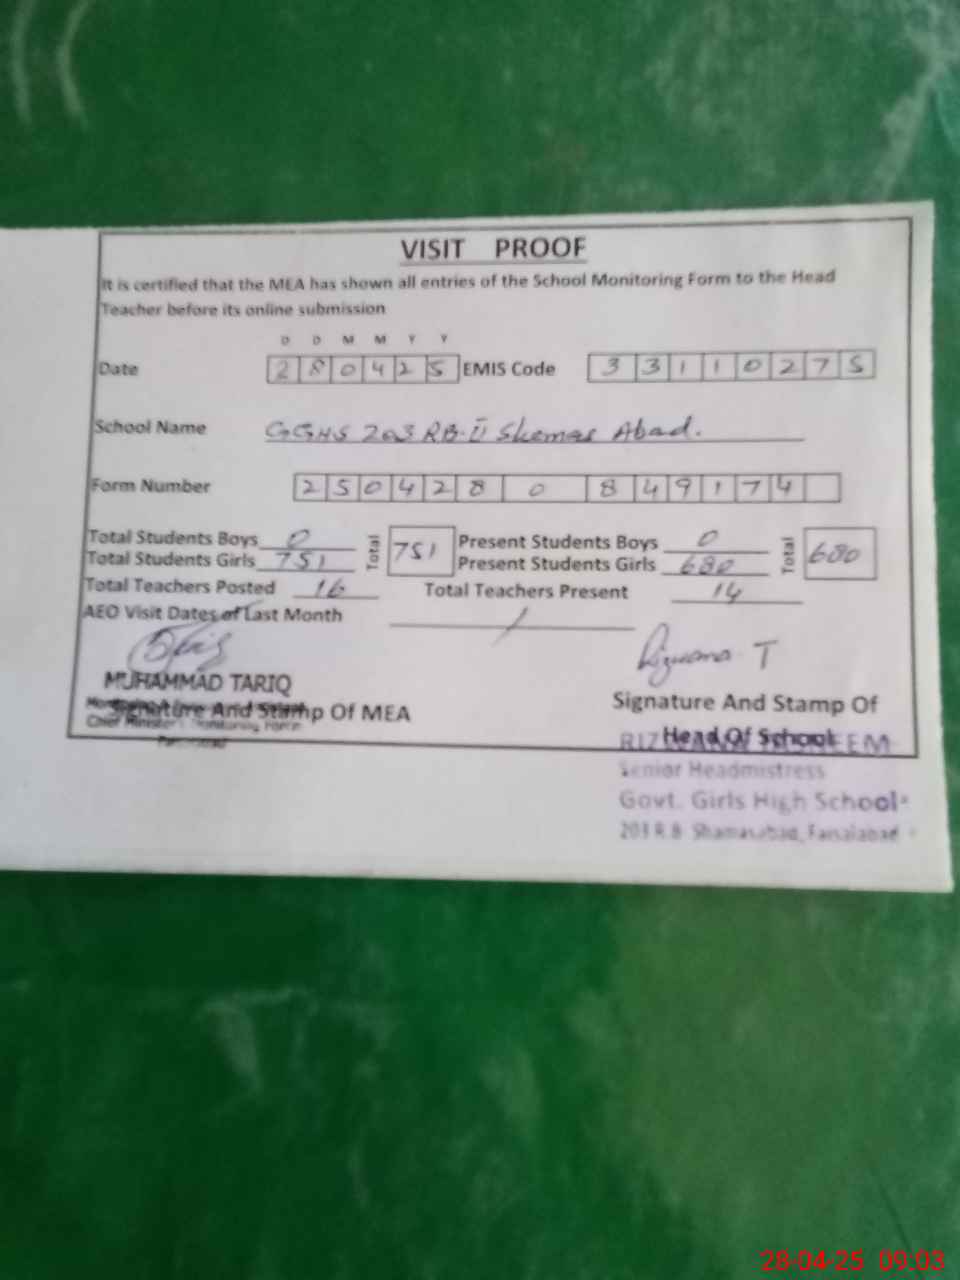 VISIT PROOF
It is certified that the MEA has shown all entries of the School Monitoring Form to the Head
Teacher before its online submission
D D M M Y Y
Date 2 8 0 4 2 5 EMIS Code 3 3 1 1 0 2 7 5
School Name GGHS 203 RB-II Shemas Abad.
Form Number 2 5 0 4 2 8 0 8 4 9 1 7 4
Total Students Boys 0 Total 751 Present Students Boys 0 Total 680
Total Students Girls 751 Present Students Girls 680
Total Teachers Posted 16 Total Teachers Present 14
AEO Visit Dates of Last Month /
Rizwana T
MUHAMMAD TARIQ
Signature And Stamp Of MEA Signature And Stamp Of
Chief Minister's Monitoring Force
Head Of School
Senior Headmistress
Govt. Girls High School
203 R.B Shamasabad, Faisalabad
28-04-25 09:03